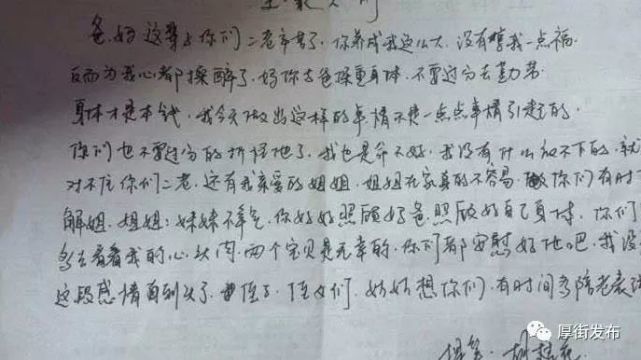 爸.妈 这辈子你们二老辛苦了.你养成我这么大.没有享我一点福
反而为我心都操碎了.妈你去爸保重身体.不要过分去勤劳.
身体才是本钱.我今天做出这样的事情不是一点点事情引起的.
你们也不要过分的折磨他了.我也是命不好.我没有什么放不下的.就
对不住你们二老.还有我亲爱的姐姐.姐姐在家真的不容易 你们有时
解姐.姐姐:妹妹不幸.你好好照顾好爸.照顾好自己身体.你们
多去看看我的心头肉.两个宝贝是无辜的.你们都安慰好他吧.我没
这段感情走到头了.侄子.侄女们.姑姑想你们.有时间多陪老表
厚街发布